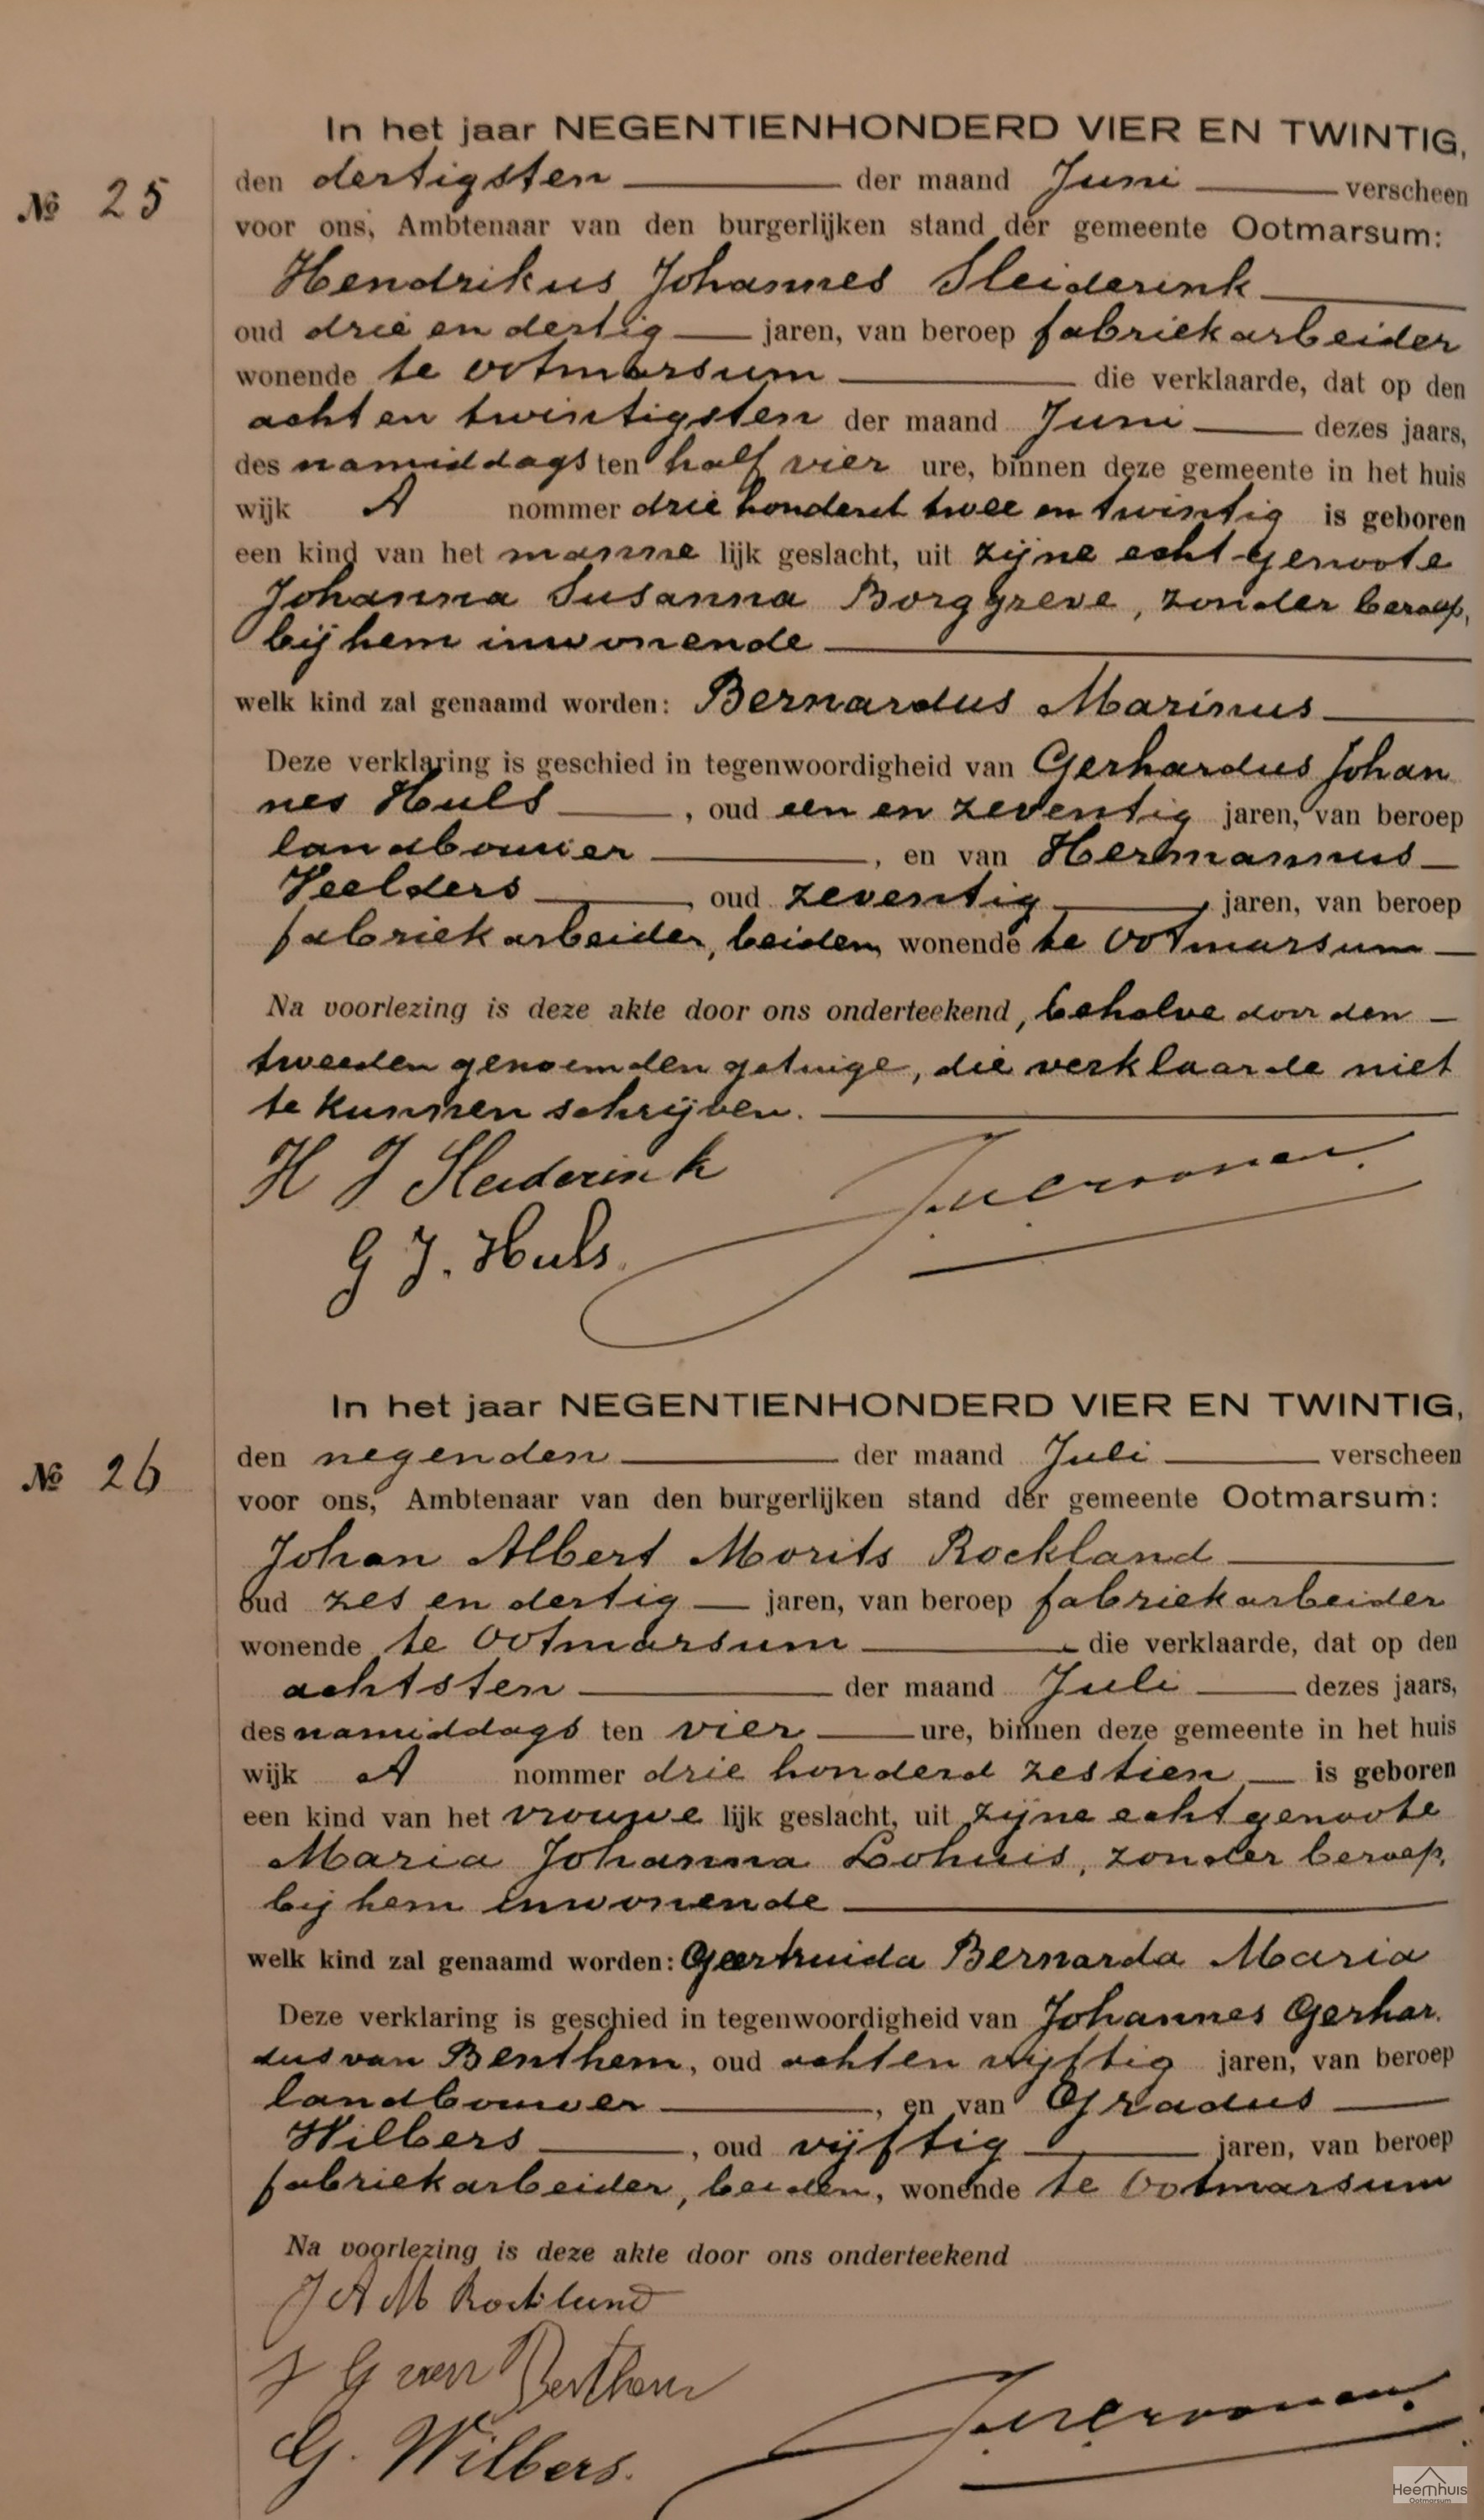 In het jaar NEGENTIENHONDERD VIER EN TWINTIG,
№ 25
den dertigsten der maand Juni verscheen
voor ons, Ambtenaar van den burgerlijken stand der gemeente Ootmarsum:
Hendrikus Johannes Sleiderink
oud drie en dertig jaren, van beroep fabriekarbeider
wonende te Ootmarsum die verklaarde, dat op den
acht en twintigsten der maand Juni dezes jaars,
des namiddags ten half vier ure, binnen deze gemeente in het huis
wijk A nommer drie honderd twee en twintig is geboren
een kind van het manne lijk geslacht, uit zijne echtgenoote
Johanna Susanna Borggreve, zonder beroep,
bij hem inwonende
welk kind zal genaamd worden: Bernardus Marinus
Deze verklaring is geschied in tegenwoordigheid van Gerhardus Johan
nes Huls, oud een en zeventig jaren, van beroep
landbouwer, en van Hermannus
Veelders, oud zeventig jaren, van beroep
fabriekarbeider, beiden, wonende te Ootmarsum
Na voorlezing is deze akte door ons onderteekend, behalve door den
tweeden genoemden getuige, die verklaarde niet
te kunnen schrijven.
H J Sleiderink
G J. Huls.
In het jaar NEGENTIENHONDERD VIER EN TWINTIG,
№ 26
den negenden der maand Juli verscheen
voor ons, Ambtenaar van den burgerlijken stand der gemeente Ootmarsum:
Johan Albert Morits Rockland
oud zes en dertig jaren, van beroep fabriekarbeider
wonende te Ootmarsum die verklaarde, dat op den
achtsten der maand Juli dezes jaars,
des namiddags ten vier ure, binnen deze gemeente in het huis
wijk A nommer drie honderd zestien is geboren
een kind van het vrouwe lijk geslacht, uit zijne echtgenoote
Maria Johanna Lohuis, zonder beroep,
bij hem inwonende
welk kind zal genaamd worden: Geertruida Bernarda Maria
Deze verklaring is geschied in tegenwoordigheid van Johannes Gerhar.
dus van Benthem, oud acht en vijftig jaren, van beroep
landbouwer, en van Gradus
Wilbers, oud vijftig jaren, van beroep
fabriekarbeider, beiden, wonende te Ootmarsum
Na voorlezing is deze akte door ons onderteekend
J A M Rockland
J G van Benthem
G. Wilbers.
Heemhuis
Ootmarsum